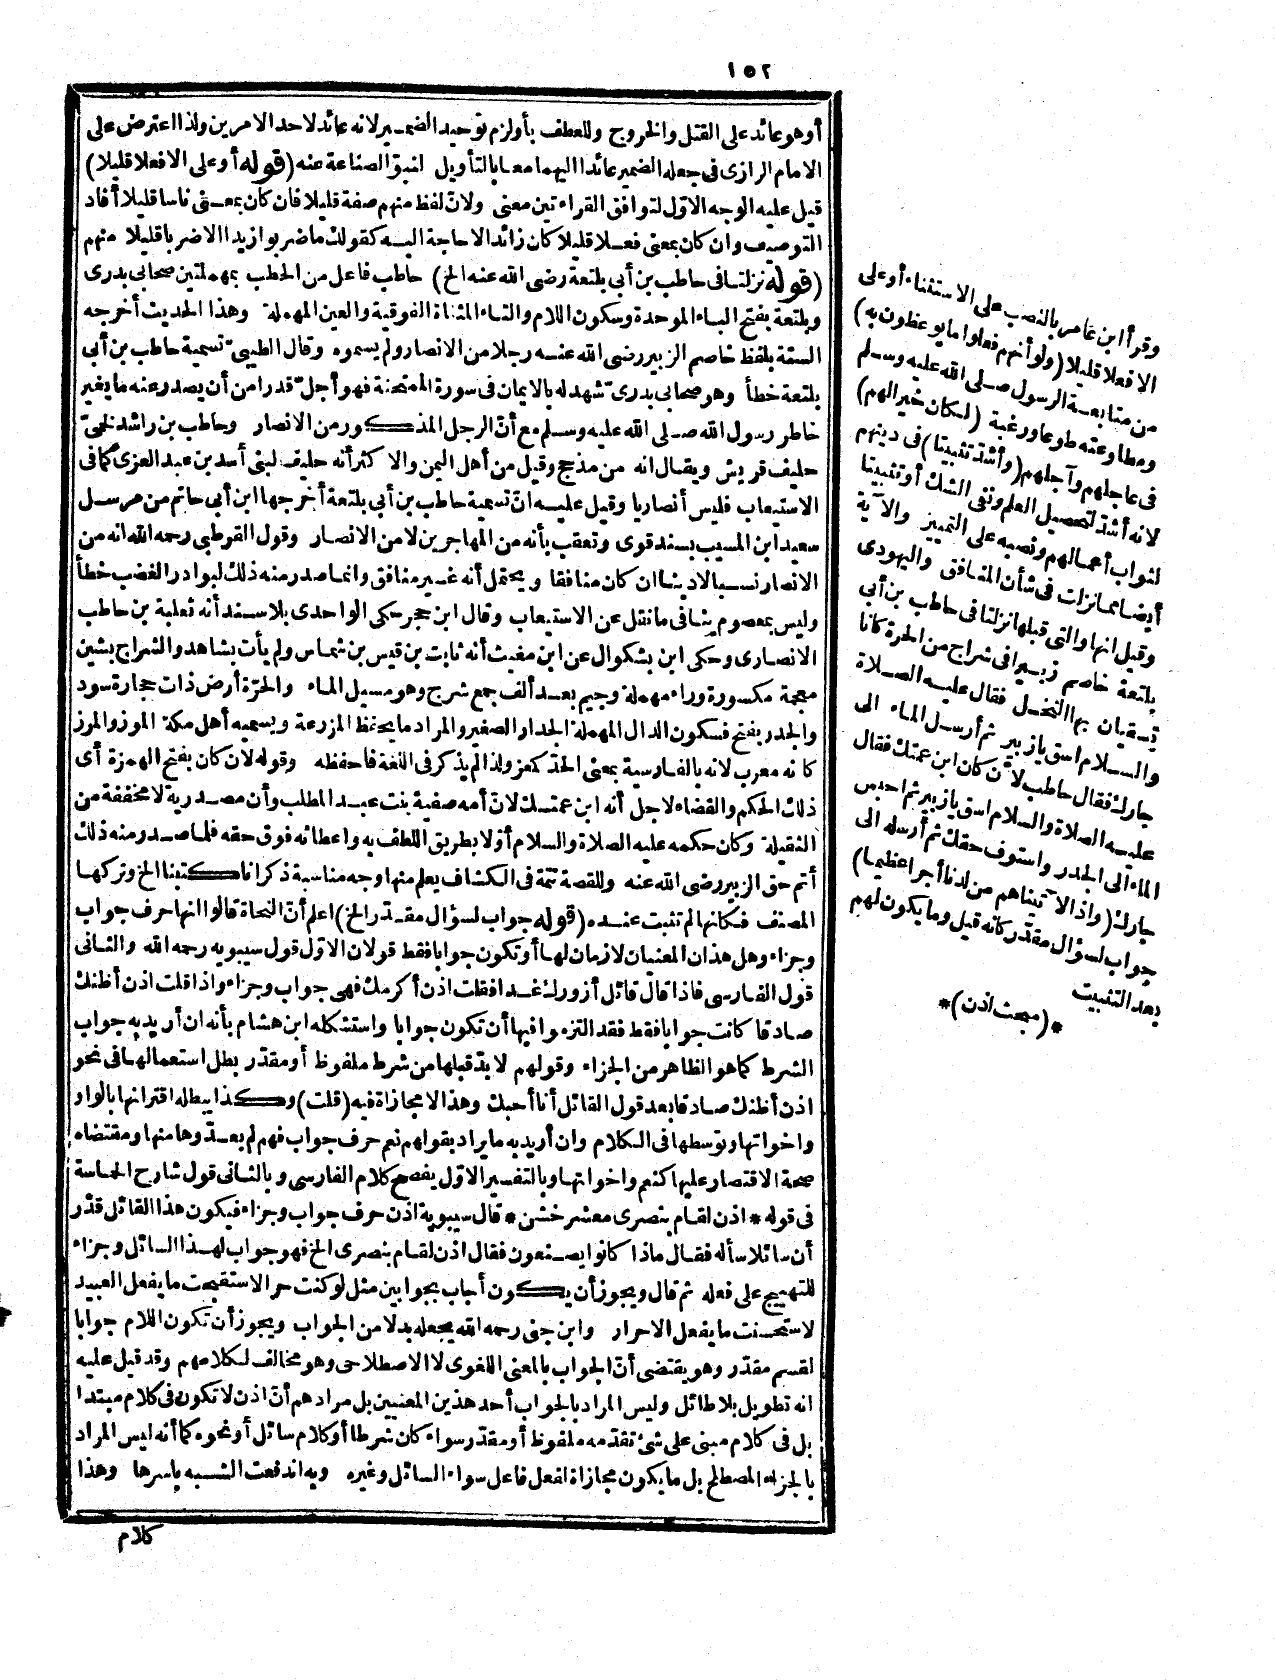 ١٥٢
أو هو عائد على القتل والخروج وللعطف بأو لزم توحيد الضمير لانه عائد لاحد الامرين ولذا اعترض على
الامام الرازى فى جعله الضمير عائدا اليهما معا بالتأويل لنبوّ الصناعة عنه (قوله أو على الافعلا قليلا)
قيل عليه الوجه الاوّل لتوافق القراءتين معنى ولانّ لفظ منهم صفة قليلا فان كان بمعنى ناسا قليلا أفاد
التوصيف وان كان بمعنى فعلا قليلا كان زائدا لا حاجة اليه كقولك ما ضربوا زيدا الا ضربا قليلا منهم
(قوله نزلتا فى حاطب بن أبى بلتعة رضى الله عنه الخ) حاطب فاعل من الحطب بمهملتين صحابى بدرى
وبلتعة بفتح الباء الموحدة وسكون اللام والتاء المثناة الفوقية والعين المهملة وهذا الحديث أخرجه
الستة بلفظ خاصم الزبير رضى الله عنه رجلا من الانصار ولم يسموه وقال الطيبىّ تسمية حاطب بن أبى
بلتعة خطأ وهو صحابى بدرىّ شهد له بالايمان فى سورة الممتحنة فهو أجلّ قدرا من أن يصدر عنه ما يغير
خاطر رسول الله صلى الله عليه وسلم مع أنّ الرجل المذكور من الانصار وحاطب بن راشد لخمىّ
حليف قريش ويقال انه من مذحج وقيل من أهل اليمن والاكثر أنه حليف لبنى أسد بن عبد العزى كما فى
الاستيعاب فليس أنصاريا وقيل عليه انّ تسمية حاطب بن أبى بلتعة أخرجها ابن أبى حاتم من مرسل
سعيد ابن المسيب بسند قوى وتعقب بأنه من المهاجرين لا من الانصار وقول القرطبى رحمه الله انه من
الانصار نسبا لا دينا ان كان منافقا ويحتمل أنه غير منافق وانما صدر منه ذلك لبوادر الغضب خطأ
وليس بمعصوم ينافى ما نقل عن الاستيعاب وقال ابن حجر حكى الواحدى بلا سند أنه ثعلبة بن حاطب
الانصارى وحكى ابن بشكوال عن ابن مغيث أنه ثابت بن قيس بن شماس ولم يأت بشاهد والشراج بشين
معجمة مكسورة وراء مهملة وجيم بعد ألف جمع شرج وهو مسيل الماء والحرّة أرض ذات حجارة سود
والجدر بفتح فسكون الدال المهملة الجدار الصغير والمراد ما يحفظ المزرعة ويسميه أهل مكة الموز والمرز
كانه معرب لانه بالفارسية بمعنى الحدّ كعز ولذا لم يذكر فى اللغة فاحفظه وقوله لان كان بفتح الهمزة أى
ذلك الحكم والقضاء لاجل أنه ابن عمتك لانّ أمه صفية بنت عبد المطلب وأن مصدرية لا مخففة من
الثقيلة وكان حكمه عليه الصلاة والسلام أوّلا بطريق اللطف به واعطائه فوق حقه فلما صدر منه ذلك
أتم حق الزبير رضى الله عنه وللقصة تتمة فى الكشاف يعلم منها وجه مناسبة ذكر انا كتبنا الخ وتركها
المصنف فكانها لم تثبت عنده (قوله جواب لسؤال مقدّر الخ) اعلم أنّ النحاة قالوا انها حرف جواب
وجزاء وهل هذان المعنيان لازمان لها أو تكون جوابا فقط قولان الاوّل قول سيبويه رحمه الله والثانى
قول الفارسى فاذا قال قائل أزورك غدا فقلت اذن أكرمك فهى جواب وجزاء واذا قلت اذن أظنك
صادقا كانت جوابا فقط فقد التزموا فيها أن تكون جوابا واستشكله ابن هشام بأنه ان أريد به جواب
الشرط كما هو الظاهر من الجزاء وقولهم لا بدّ قبلها من شرط ملفوظ أو مقدّر بطل استعمالها فى نحو
اذن أظنك صادقا بعد قول القائل أنا أحبك وهذا لا مجازاة فيه (قلت) وكذا يبطله اقترانها بالواو
واخواتها وتوسطها فى الكلام وان أريد به ما يراد بقولهم نعم حرف جواب فهم لم يعدّوها منها ومقتضاه
صحة الاقتصار عليها كنعم واخواتها وبالتفسير الاوّل يفصح كلام الفارسى وبالثانى قول شارح الحماسة
فى قوله * اذن لقام بنصرى معشر خشن * قال سيبويه اذن حرف جواب وجزاء فيكون هذا القائل قدّر
أن سائلا سأله فقال ماذا كانوا يصنعون فقال اذن لقام بنصرى الخ فهو جواب لهذا السائل وجزاء
للتهييج على فعله ثم قال ويجوز أن يكون أجاب بجوابين مثل لو كنت حر الاستقبحت ما يفعل العبيد
لاستحسنت ما يفعل الاحرار وابن جنى رحمه الله يجعله بدلا من الجواب ويجوز أن تكون اللام جوابا
لقسم مقدّر وهو يقتضى أنّ الجواب بالمعنى اللغوى لا الاصطلاحى وهو مخالف لكلامهم وقد قيل عليه
انه تطويل بلا طائل وليس المراد بالجواب أحد هذين المعنيين بل مرادهم أنّ اذن لا تكون فى كلام مبتدا
بل فى كلام مبنى على شئ تقدّمه ملفوظ أو مقدّر سواء كان شرطا أو كلام سائل أو نحوه كما أنه ليس المراد
بالجزاء المصطلح بل ما يكون مجازاة لفعل فاعل سواء السائل وغيره وبه اندفعت الشبه باسرها وهذا
كلام
وقرأ ابن عامر بالنصب على الاستثناء أو على
الافعلا قليلا (ولو أنهم فعلوا ما يوعظون به)
من متابعة الرسول صلى الله عليه وسلم
ومطاوعته طوعا ورغبة (لكان خيرا لهم)
فى عاجلهم وآجلهم (وأشدّ تثبيتا) فى دينهم
لانه أشدّ لتحصيل العلم ونفى الشك أو تثبيتا
لثواب أعمالهم ونصبه على التمييز والآية
أيضا مما نزلت فى شأن المنافق واليهودى
وقيل انها والتى قبلها نزلتا فى حاطب بن أبى
بلتعة خاصم زبيرا فى شراج من الحرة كانا
يسقيان بها النخل فقال عليه الصلاة
والسلام اسق يا زبير ثم أرسل الماء الى
جارك فقال حاطب لأن كان ابن عمتك فقال
عليه الصلاة والسلام اسق يا زبير ثم احبس
الماء الى الجدر واستوف حقك ثم أرسله الى
جارك (واذا لآتيناهم من لدنا أجرا عظيما)
جواب لسؤال مقدّر كانه قيل وما يكون لهم
بعد التثبيت
*(مبحث اذن)*